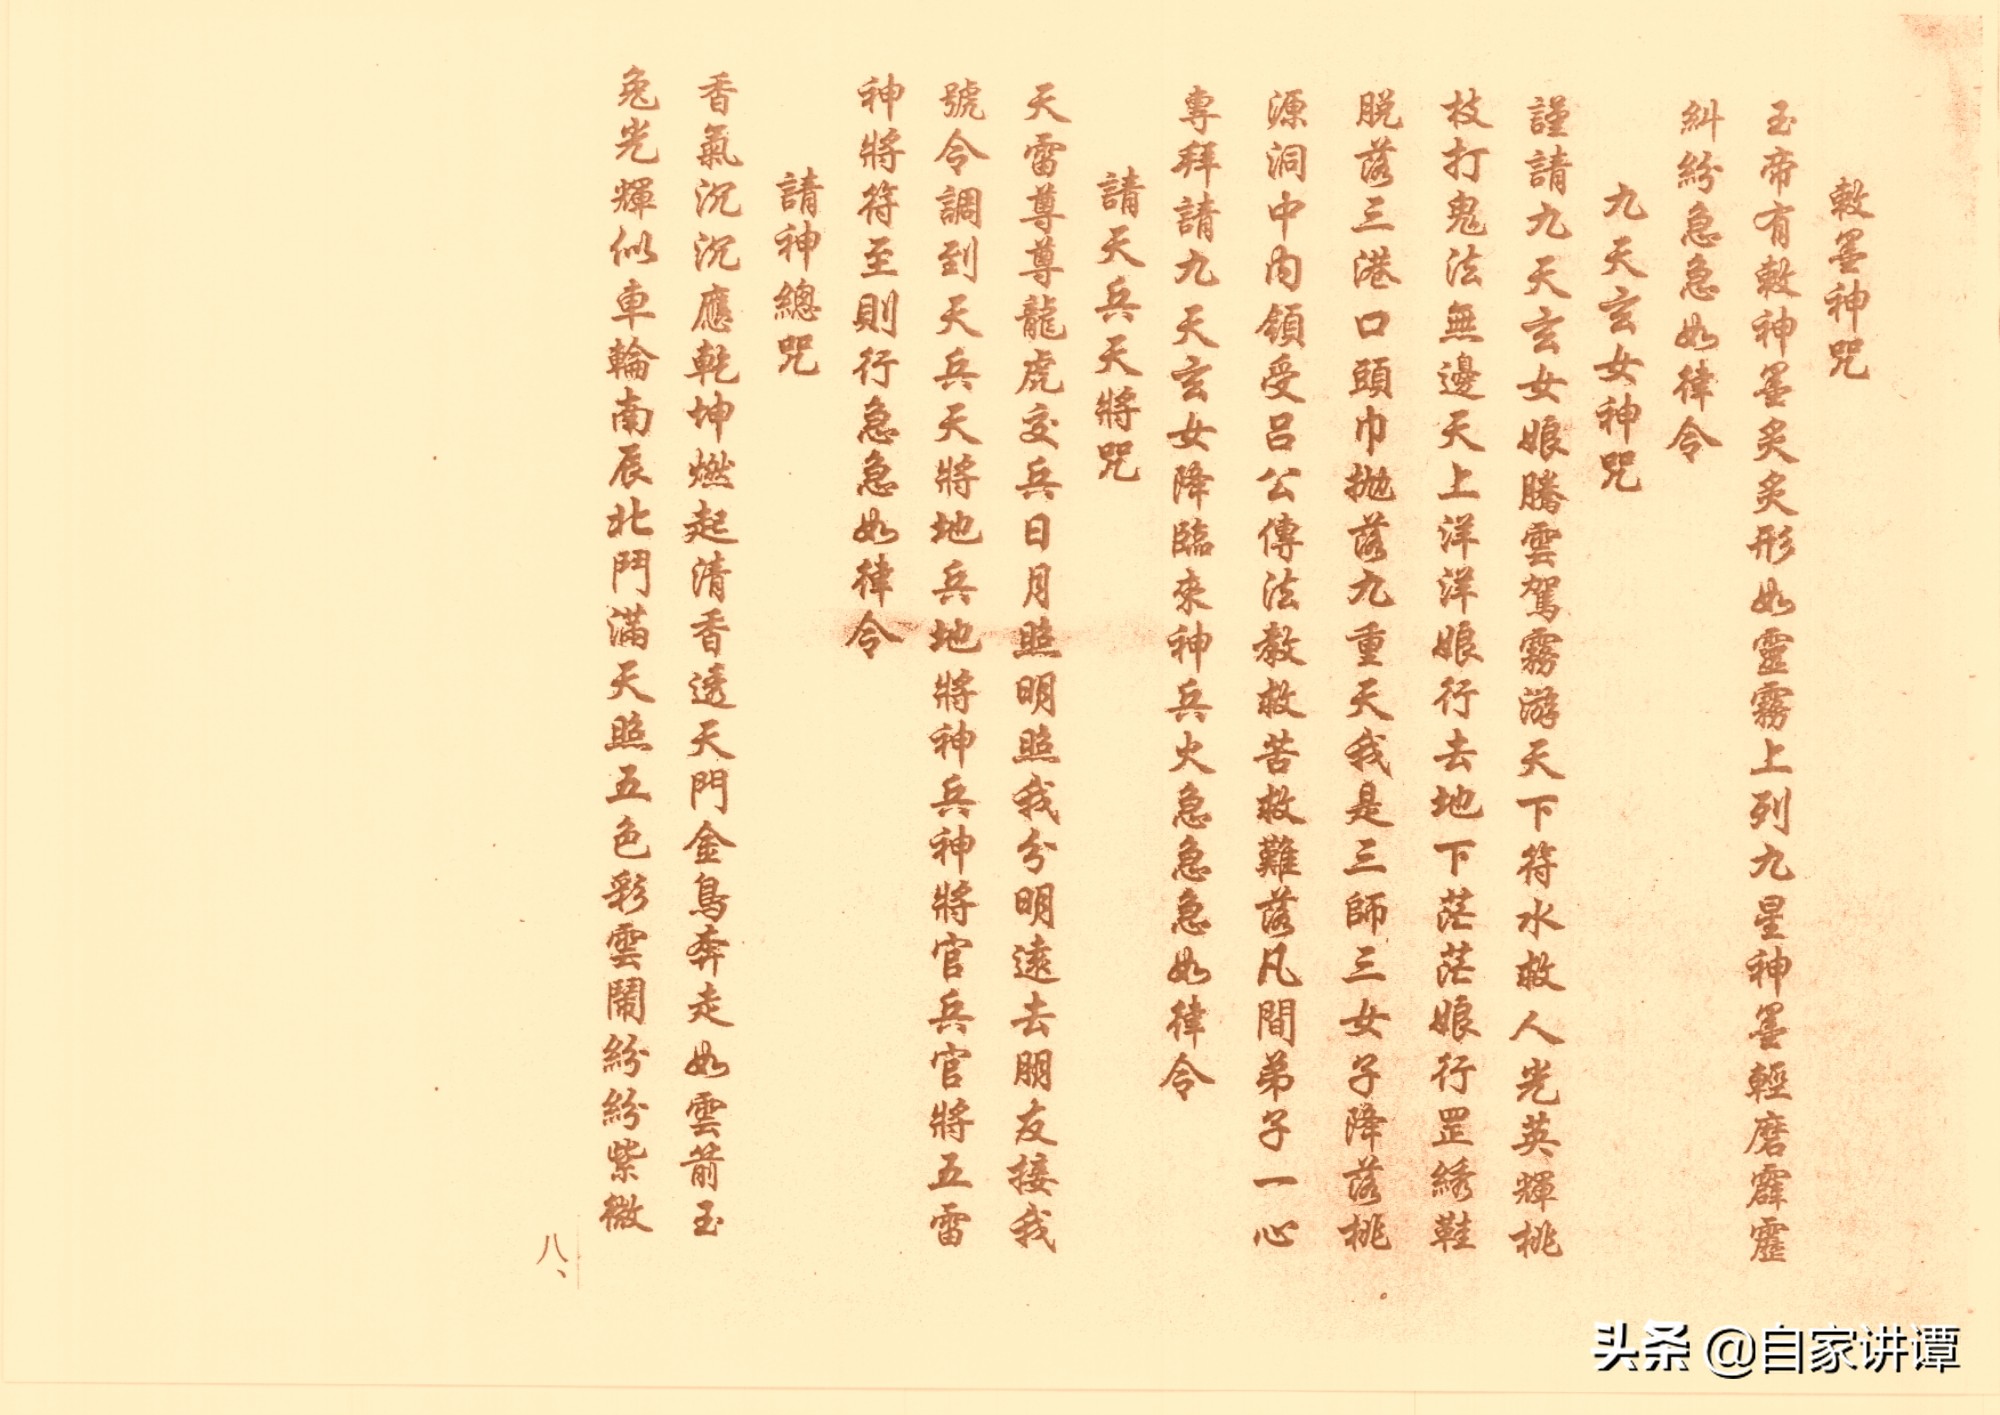 敕墨神咒
玉帝有敕神墨炙炙形如靈霧上列九星神墨輕磨霹靂
糾紛急急如律令
九天玄女神咒
謹請九天玄女娘騰雲駕霧游天下符水救人光英輝桃
枝打鬼法無邊天上洋洋娘行去地下茫茫娘行罡綉鞋
脱落三港口頭巾拋落九重天我是三師三女子降落桃
源洞中內領受吕公傳法教救苦救難落凡間弟子一心
專拜請九天玄女降臨來神兵火急急急如律令
請天兵天將咒
天雷尊尊龍虎交兵日月照明照我分明遠去朋友接我
號令調到天兵天將地兵地將神兵神將官兵官將五雷
神將符至則行急急如律令
請神總咒
香氣沉沉應乾坤燃起清香透天門金鳥奔走如雲箭玉
兔光輝似車輪南辰北鬥滿天照五色彩雲鬧紛紛紫微
八、
头条 @自家讲谭